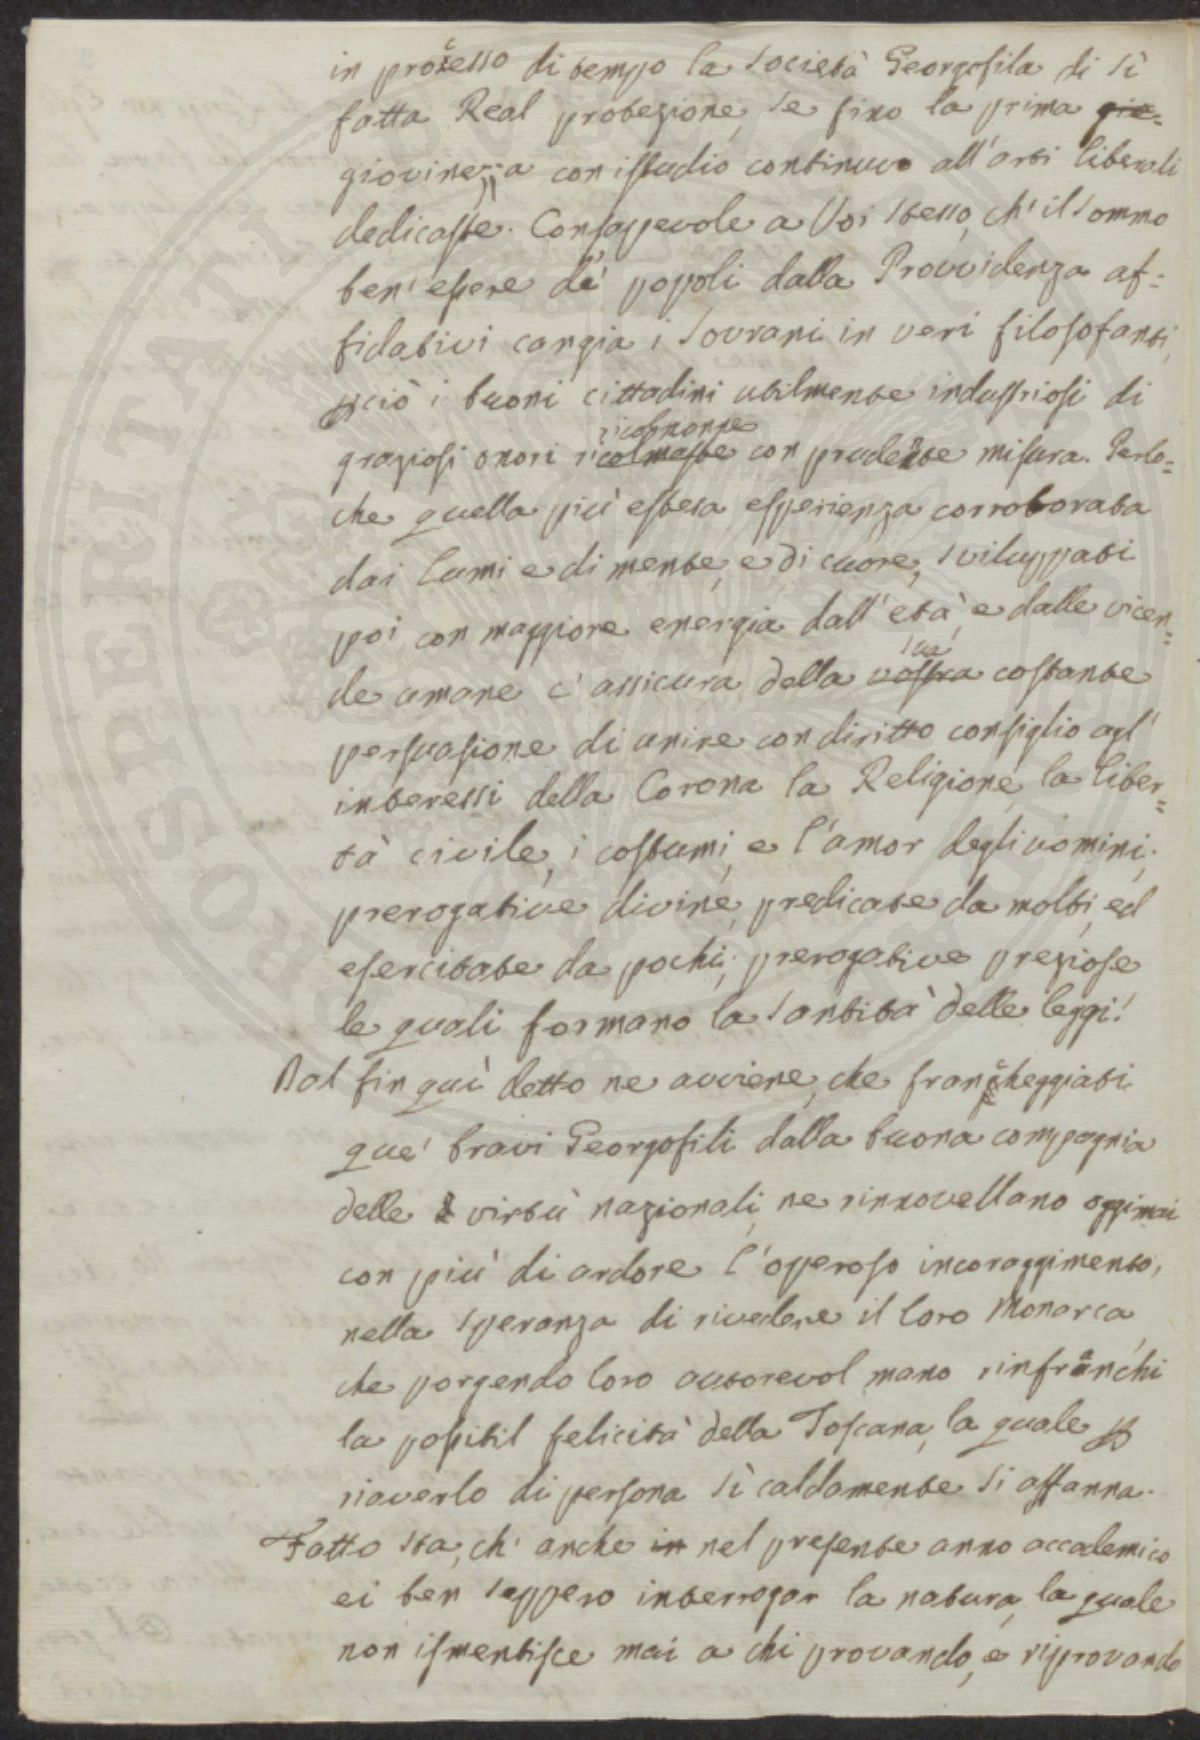 in processo di tempo la Società Georgofila di sì
fatta Real protezione, se fino la prima gio=
giovinezza con istudio continuo all'arti liberali
dedicaste. Consapevole a Voi stesso, ch' il sommo
ben'essere de' popoli dalla Provvidenza af=
fidativi cangia i Sovrani in veri filosofanti,
perciò i buoni cittadini utilmente industriosi di
graziosi onori ricolmaste ricolmonne con prudente misura. Perlo=
che quella più estesa esperienza corroborata
dai lumi e di mente, e di cuore, sviluppati
poi con maggiore energia dall'età, e dalle vicen=
de umane c'assicura della vostra sua costante
persuasione di unire con diritto consiglio agl'
interessi della Corona la Religione, la liber=
tà civile, i costumi, e l'amor degli uomini;
prerogative divine, predicate da molti, ed
esercitate da pochi; prerogative preziose
le quali formano la santità delle leggi!
Dal fin quì detto ne avviene, che francheggiati
que' bravi Georgofili dalla buona compagnia
delle virtù nazionali, ne rinnovellano oggimai
con più di ardore l'operoso incoraggimento,
nella speranza di rivedere il loro Monarca,
che porgendo loro autorevol mano rinfranchi
la possibil felicità della Toscana, la quale per
riaverlo di persona sì caldamente si affanna.
Fatto sta, ch' anche in nel presente anno accademico
ei ben seppero interrogar la natura, la quale
non ismentisce mai a chi provando, e riprovando
PROSPERITATI